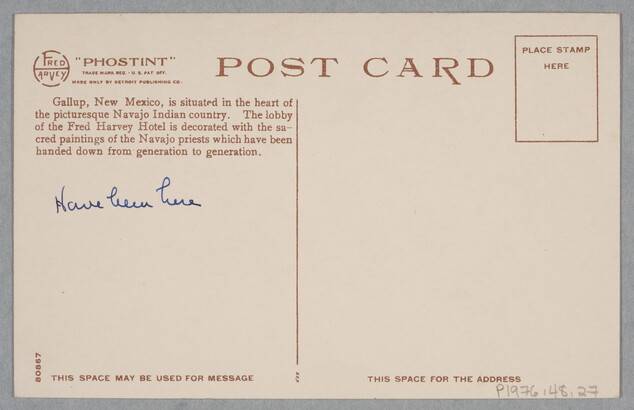 FRED
HARVEY
"PHOSTINT"
TRADE MARK REG. - U. S. PAT. OFF.
MADE ONLY BY DETROIT PUBLISHING CO.
POST CARD
PLACE STAMP
HERE
Gallup, New Mexico, is situated in the heart of
the picturesque Navajo Indian country. The lobby
of the Fred Harvey Hotel is decorated with the sa-
cred paintings of the Navajo priests which have been
handed down from generation to generation.
Have been here
80867
THIS SPACE MAY BE USED FOR MESSAGE
THIS SPACE FOR THE ADDRESS
P1976.48.27